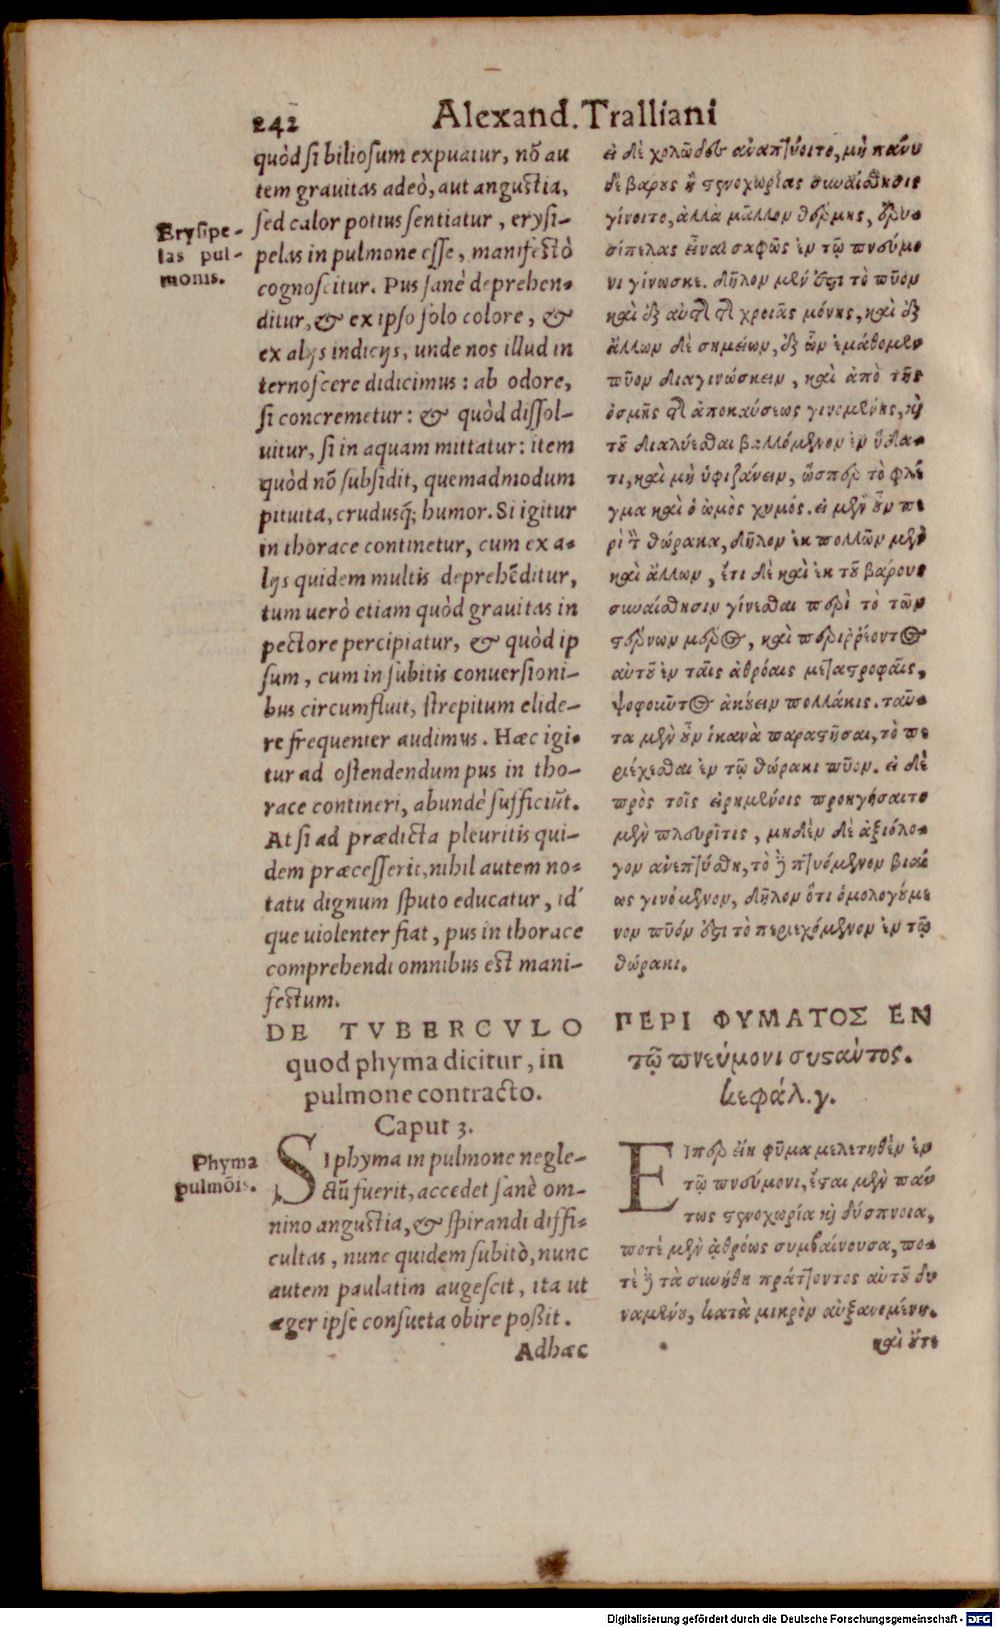 242 Alexand. Tralliani
quòd si biliosum expuatur, nō au
tem grauitas adeò, aut angustia,
sed calor potius sentiatur, erysi-
pelas in pulmone esse, manifestò
cognoscitur. Pus sanè deprehen-
ditur, & ex ipso solo colore, &
ex alijs indicijs, unde nos illud in
ternoscere didicimus: ab odore,
si concremetur: & quòd dissol-
uitur, si in aquam mittatur: item
quòd nō subsidit, quemadmodum
pituita, crudusq; humor. Si igitur
in thorace continetur, cum ex a-
lijs quidem multis deprehēditur,
tum uerò etiam quòd grauitas in
pectore percipiatur, & quòd ip
sum, cum in subitis conuersioni-
bus circumfluit, strepitum elide-
re frequenter audimus. Hæc igi-
tur ad ostendendum pus in tho-
race contineri, abundè sufficiūt.
At si ad prædicta pleuritis qui-
dem præcesserit, nihil autem no-
tatu dignum sputo educatur, id
que uiolenter fiat, pus in thorace
comprehendi omnibus est mani-
festum.
Erysipe-
las pul-
monis.
DE TVBERCVLO
quod phyma dicitur, in
pulmone contracto.
Caput 3.
Phyma
pulmōis.
SI phyma in pulmone negle-
ctū fuerit, accedet sanè om-
nino angustia, & spirandi diffi-
cultas, nunc quidem subitò, nunc
autem paulatim augescit, ita ut
æger ipse consueta obire poßit.
Adhæc
εἰ δὲ χολῶδες ἀναπτύοιτο, μὴ πάνυ
δὲ βάρους ἢ στενοχωρίας συναίσθησις
γίνοιτο, ἀλλὰ μᾶλλον θέρμης, ἐρυ-
σίπελας εἶναι σαφῶς ἐν τῷ πνεύμο
νι γίνωσκε. δῆλον μὲν ὅτι τὸ πῦον
καὶ ἐξ αὐτῆς τῆς χροιᾶς μόνης, καὶ ἐξ
ἄλλων δὲ σημείων, ἐξ ὧν ἐμάθομεν
πῦον διαγινώσκειν, καὶ ἀπὸ τῆς
ὀσμῆς τῆς ἀποκαύσεως γινομένης, καὶ
τοῦ διαλύεσθαι βαλλόμενον ἐν ὕδα-
τι, καὶ μὴ ὑφιζάνειν, ὥσπερ τὸ φλέ
γμα καὶ ὁ ὠμὸς χυμός. εἰ μὲν οὖν πε
ρὶ τὸν θώρακα, δῆλον ἐκ πολλῶν μὲν
καὶ ἄλλων, ἔτι δὲ καὶ ἐκ τοῦ βάρους
συναίσθησιν γίνεσθαι περὶ τὸ τῶν
στέρνων μέρος, καὶ περιῤῥέοντος
αὐτοῦ ἐν ταῖς ἀθρόαις μεταστροφαῖς,
ψοφοῦντος ἀκούειν πολλάκις. ταῦ-
τα μὲν οὖν ἱκανὰ παραστῆσαι, τὸ πε
ριέχεσθαι ἐν τῷ θώρακι πῦον. εἰ δὲ
πρὸς τοῖς εἰρημένοις προηγήσαιτο
μὲν πλευρῖτις, μηδὲν δὲ ἀξιόλο-
γον ἀνεπτύσθη, τὸ δὲ πτυόμενον βιαί
ως γινόμενον, δῆλον ὅτι ὁμολογούμε
νον πῦόν ἐστι τὸ περιεχόμενον ἐν τῷ
θώρακι.
ΠΕΡΙ ΦΥΜΑΤΟΣ ΕΝ
τῷ πνεύμονι συσταύτος.
κεφάλ. γ.
ΕΙπερ εἴη φῦμα μελετηθὲν ἐν
τῷ πνεύμονι, ἔσται μὲν πάν
τως στενοχωρία καὶ δύσπνοια,
ποτὲ μὲν ἀθρόως συμβαίνουσα, πο-
τὲ δὲ τὰ συνήθη πράττοντος αὐτοῦ δυ
ναμένου, κατὰ μικρὸν αὐξανομένη.
καὶ οὔτε
Digitalisierung gefördert durch die Deutsche Forschungsgemeinschaft - DFG